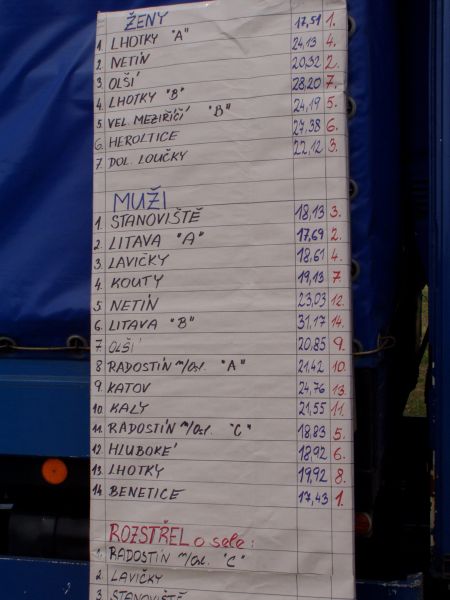 ŽENY
1. LHOTKY "A" 17,51 1.
2. NETÍN 24,13 4.
3. OLŠÍ 20,32 2.
4. LHOTKY "B" 28,20 7.
5. VEL. MEZIŘÍČÍ "B" 24,19 5.
6. HEROLTICE 27,38 6.
7. DOL. LOUČKY 22,12 3.
MUŽI
1. STANOVIŠTĚ 18,13 3.
2. LITAVA "A" 17,69 2.
3. LAVIČKY 18,61 4.
4. KOUTY 19,13 7.
5 NETÍN 23,03 12.
6. LITAVA "B" 31,17 14.
7 OLŠÍ 20,85 9.
8 RADOSTÍN n/Osl. "A" 21,42 10.
9. KATOV 24,76 13.
10. KALY 21,55 11.
11. RADOSTÍN n/Osl. "C" 18,83 5.
12 HLUBOKÉ 18,92 6.
13. LHOTKY 19,92 8.
14 BENETICE 17,43 1.
ROZSTŘEL o sele:
1. RADOSTÍN n/Osl. "C"
2. LAVIČKY
3 STANOVIŠTĚ